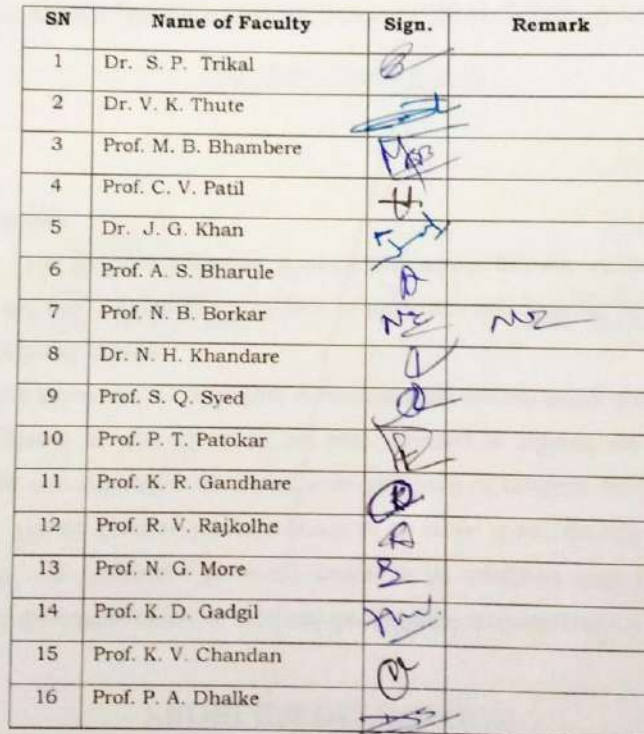 SN Name of Faculty Sign. Remark
1 Dr. S. P. Trikal
2 Dr. V. K. Thute
3 Prof. M. B. Bhambere
4 Prof. C. V. Patil
5 Dr. J. G. Khan
6 Prof. A. S. Bharule
7 Prof. N. B. Borkar
8 Dr. N. H. Khandare
9 Prof. S. Q. Syed
10 Prof. P. T. Patokar
11 Prof. K. R. Gandhare
12 Prof. R. V. Rajkolhe
13 Prof. N. G. More
14 Prof. K. D. Gadgil
15 Prof. K. V. Chandan
16 Prof. P. A. Dhalke